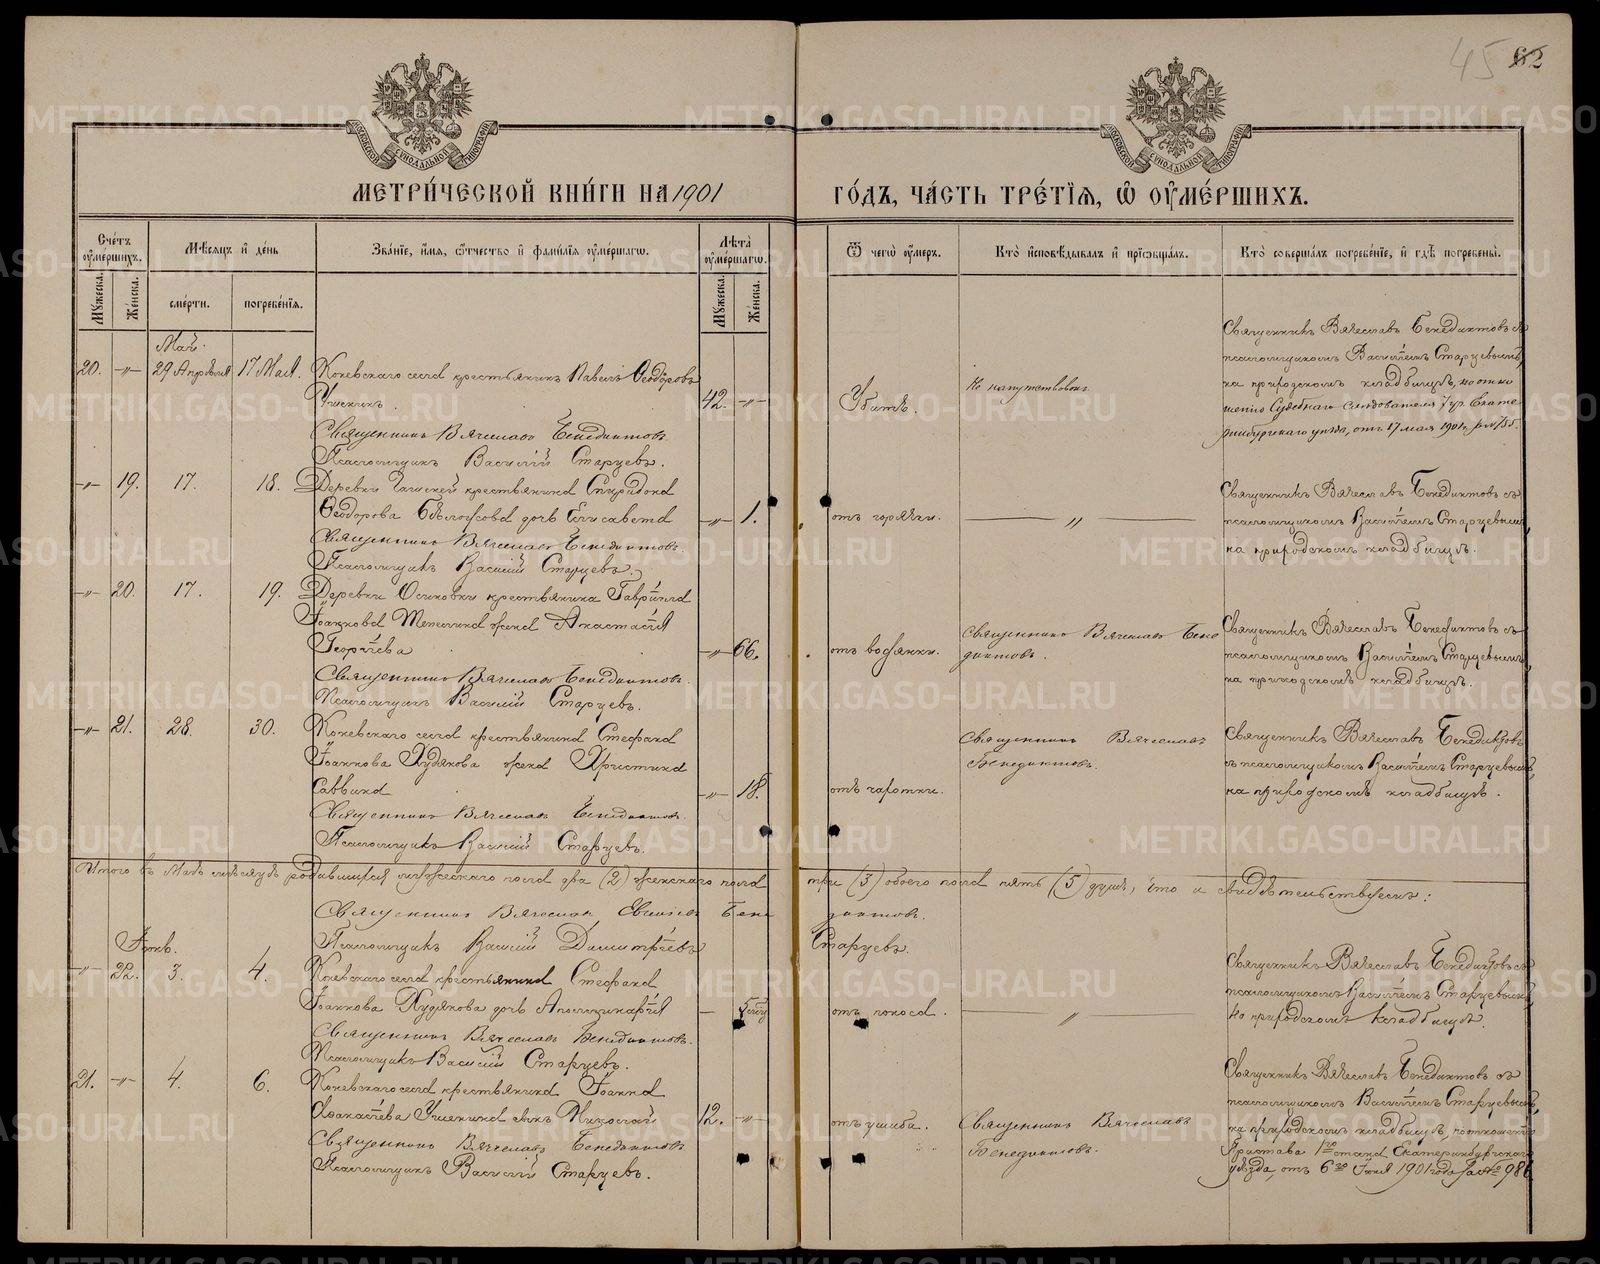 45 82
МОСКОВСКОЙ СѴНОДАЛЬНОЙ ТИПОГРАФІИ
МОСКОВСКОЙ СѴНОДАЛЬНОЙ ТИПОГРАФІИ
МЕТРИ́ЧЕСКОЙ КНИ́ГИ НА 1901 ГО́ДЪ, ЧА́СТЬ ТРЕ́ТІѦ, Ѡ҆ ОУ҆МЕ́РШИХЪ.
Счетъ оумершихъ. Мѣсяцъ и день Званіе, имя, отчество и фамилія оумершагѡ. Лѣта оумершагѡ. Ѿ чегѡ оумеръ. Кто исповѣдывалъ и пріобщалъ. Кто совершалъ погребеніе, и гдѣ погребены.
Мужеска. Женска. смерти. погребенія. Мужеска. Женска.
Май.
20. -„- 29 Апрѣля 17 Мая. Коневскаго села крестьянинъ Павелъ Ѳеодоровъ
42. -„- Убитъ. Не напутствованъ.
Священникъ Вячеславъ Бенедиктовъ съ
псаломщикомъ Василіемъ Старцевымъ,
на приходскомъ кладбищѣ, по отно
шенію Судебнаго Слѣдователя 7 уч. Екате
ринбургскаго уѣзда, отъ 17 мая 1901 г. за №755.
Священникъ Вячеславъ Бенедиктовъ.
Псаломщикъ Василій Старцевъ.
-„- 19. 17. 18. Деревни крестьянина Спиридона
Ѳеодорова Бѣлоусова дочь Елисавета -„- 1. отъ горячки. -„-
Священникъ Вячеславъ Бенедиктовъ съ
псаломщикомъ Василіемъ Старцевымъ,
на приходскомъ кладбищѣ.
Священникъ Вячеславъ Бенедиктовъ.
Псаломщикъ Василій Старцевъ.
-„- 20. 17. 19. Деревни Осиновки крестьянина Гавріила
Іоаннова жена Анастасія
Георгіева -„- 66. отъ водянки. Священникъ Вячеславъ Бене
диктовъ.
Священникъ Вячеславъ Бенедиктовъ съ
псаломщикомъ Василіемъ Старцевымъ,
на приходскомъ кладбищѣ.
Священникъ Вячеславъ Бенедиктовъ.
Псаломщикъ Василій Старцевъ.
-„- 21. 28. 30. Коневскаго села крестьянина Стефана
Іоаннова Худякова жена Христина
Саввина -„- 18. отъ чахотки. Священникъ Вячеславъ
Бенедиктовъ.
Священникъ Вячеславъ Бенедиктовъ
съ псаломщикомъ Василіемъ Старцевымъ,
на приходскомъ кладбищѣ.
Священникъ Вячеславъ Бенедиктовъ.
Псаломщикъ Василій Старцевъ.
Итого въ Маѣ мѣсяцѣ родившихся мужескаго пола два (2) женскаго пола три (3) обоего пола пять (5) душъ, что и свидѣтельствуемъ:
Священникъ Вячеславъ Евгеніевъ Бенедиктовъ.
Псаломщикъ Василій Димитріевъ Старцевъ.
Іюнь.
-„- 22. 3. 4. Коневскаго села крестьянина Стефана
Іоаннова Худякова дочь Аполлинарія — отъ поноса. -„-
Священникъ Вячеславъ Бенедиктовъ съ
псаломщикомъ Василіемъ Старцевымъ,
на приходскомъ кладбищѣ.
Священникъ Вячеславъ Бенедиктовъ.
Псаломщикъ Василій Старцевъ.
21. -„- 4. 6. Коневскаго села крестьянина Іоанна
Аѳанасіева сынъ Николай 12. -„- отъ ушиба. Священникъ Вячеславъ
Бенедиктовъ.
Священникъ Вячеславъ Бенедиктовъ съ
псаломщикомъ Василіемъ Старцевымъ,
на приходскомъ кладбищѣ, по отношенію
Пристава 1го стана Екатеринбургскаго
уѣзда, отъ 6го Іюня 1901 года за №986
Священникъ Вячеславъ Бенедиктовъ
Псаломщикъ Василій Старцевъ.
METRIKI.GASO-URAL.RU